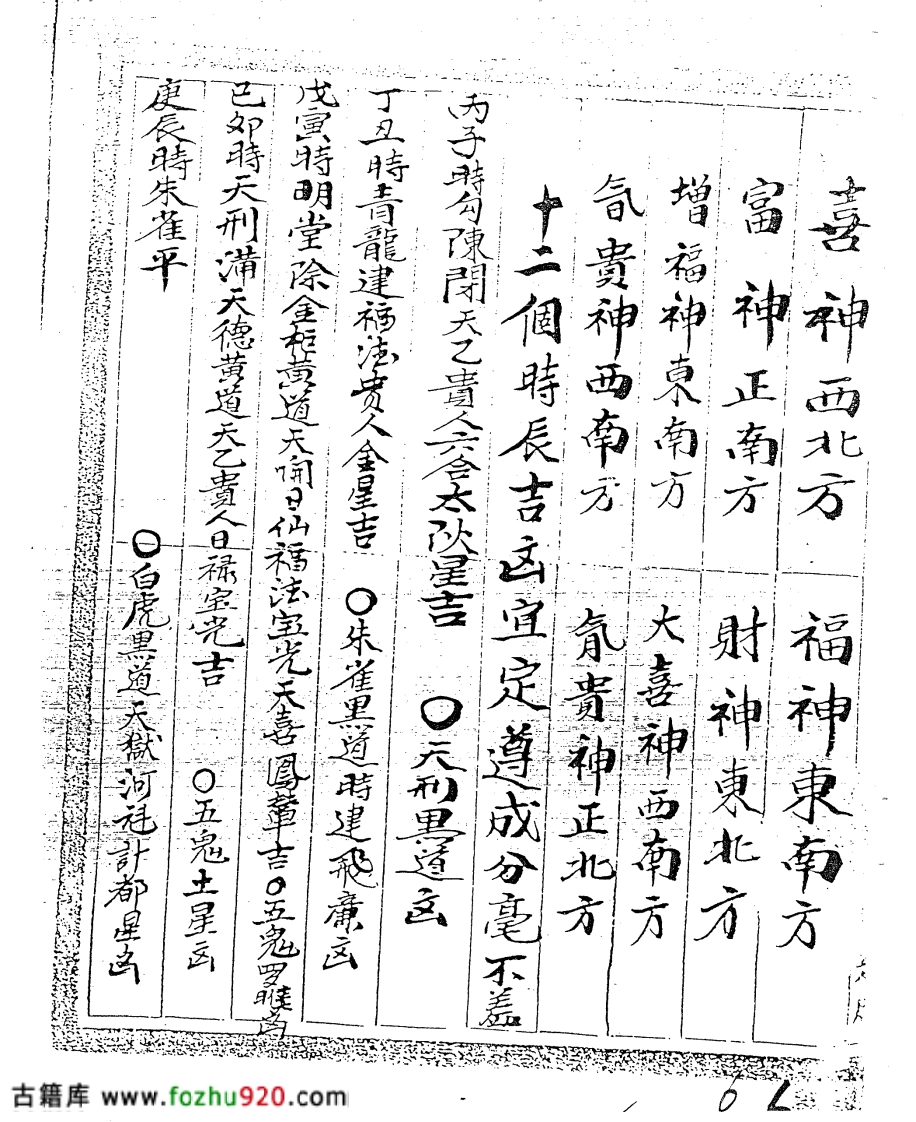 喜神西北方 福神東南方
富神正南方 財神東北方
增福神東南方 大喜神西南方
貴神西南方 貴神正北方
十二個時辰吉凶宜定遵成分毫不差
丙子時勾陳閉天乙貴人六合太阴星吉 〇天刑黑道凶
丁丑時青龍建福法贵人金星吉 〇朱雀黑道時建飛廉凶
戊寅時明堂除金柜黄道天開日仙福法宝光天喜鳳輦吉〇五鬼罗睺凶
己卯時天刑满天德黄道天乙貴人日禄宝光吉 〇五鬼土星凶
庚辰時朱雀平 〇白虎黑道天獄河魁計都星凶
6
古籍库 www.fozhu920.com